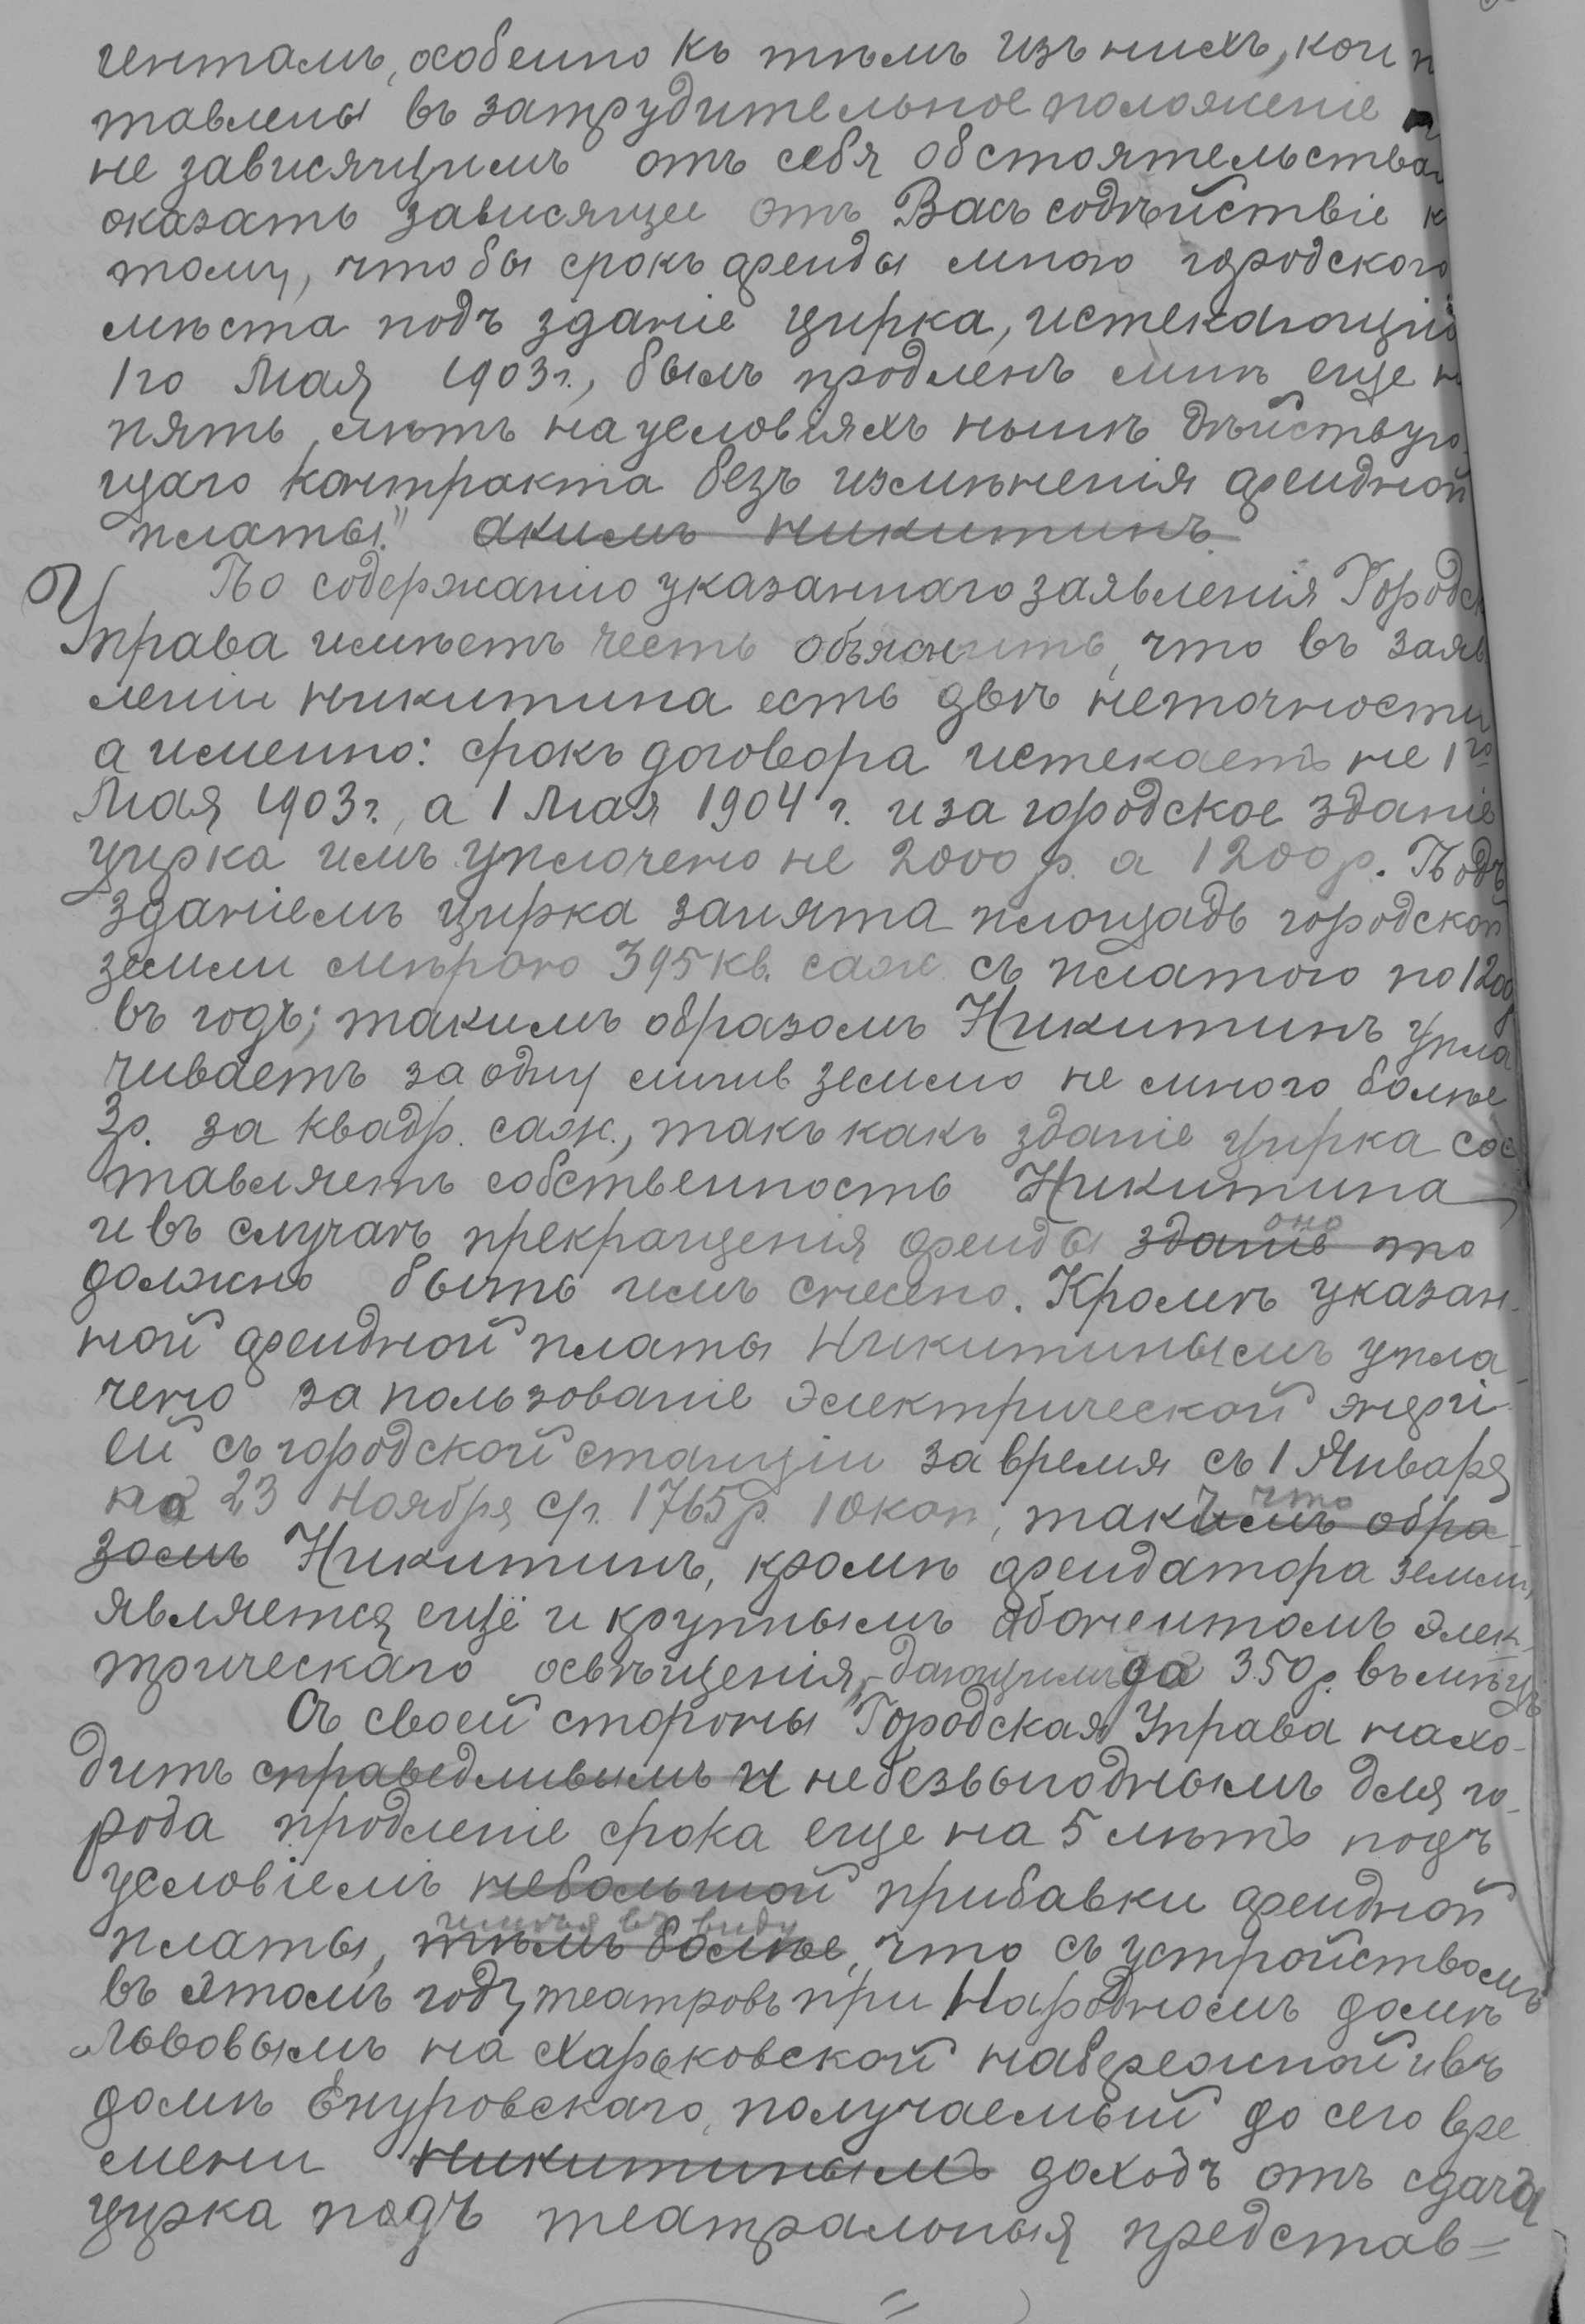 гентамъ, особенно къ тѣмъ изъ нихъ, кои п
тавлены въ затрудительное положеніе
не зависящимъ отъ себя обстоятельства
оказать зависящее отъ Васъ содѣйствіе к
тому, чтобы срокъ аренды мною городского
мѣста подъ зданіе цирка, истекающій
1го Мая 1903 г., былъ продленъ мнѣ еще н
пять лѣтъ на условіяхъ нынѣ дѣйствую-
щаго контракта безъ измѣненія арендной
платы." Акимъ Никитинъ.
По содержанію указаннаго заявленія Городск
Управа имѣетъ честь объяснить, что въ заяв
леніи Никитина есть двѣ неточности
а именно: срокъ договора истекаетъ не 1го
Мая 1903 г., а 1 Мая 1904 г. и за городское зданіе
цирка имъ уплочено не 2000 р. а 1200 р. Подъ
зданіемъ цирка занята площадь городской
земли мѣрою 395 кв. саж. съ платою по 1200 р
въ годъ; такимъ образомъ Никитинъ упла
чиваетъ за одну лишь землю не много болѣе
3 р. за квадр. саж., такъ какъ зданіе цирка сос
тавляетъ собственность Никитина
и въ случаѣ прекращенія аренды зданіе оно то
должно быть имъ снесено. Кромѣ указан-
ной арендной платы Никитинымъ упла
чено за пользованіе электрической энергі-
ей съ городской станціи за время съ 1 Января
по 23 Ноября с/г. 1765 р. 10 коп., такимъ что обра-
зомъ Никитинъ, кромѣ арендатора земли,
является ещё и крупнымъ абонентомъ элек-
трическаго освѣщенія, дающимъ до 350 р. въ мѣсяцъ
Съ своей стороны Городская Управа нахо-
дитъ справедливымъ и небезвыгоднымъ для го-
рода продленіе срока еще на 5 лѣтъ подъ
условіемъ небольшой прибавки арендной
имѣя въ виду
платы, тѣмъ болѣе, что съ устройствомъ
въ этомъ году театровъ при Народномъ домѣ
Львовымъ на Харьковской набережной и въ
домѣ Екуровскаго, получаемый до сего вре
мени Никитинымъ доходъ отъ сдачи
цирка подъ театральныя представ=